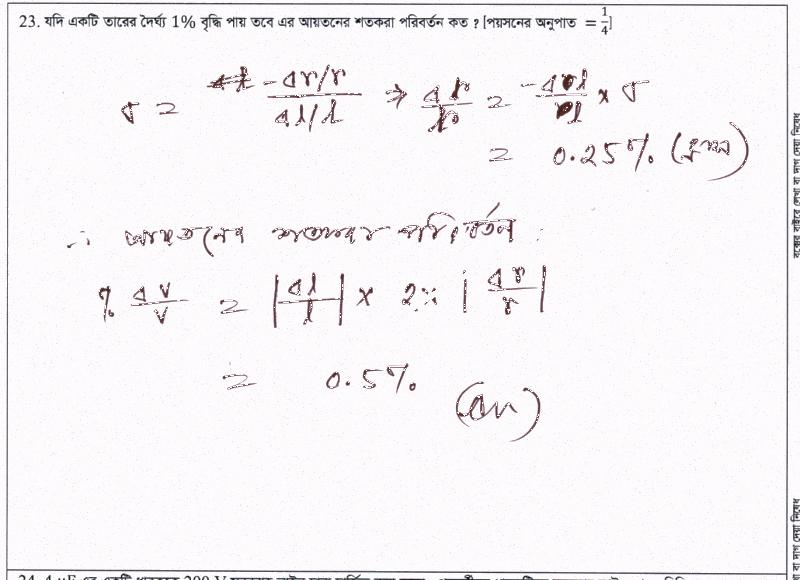 23. যদি একটি তারের দৈর্ঘ্য 1% বৃদ্ধি পায় তবে এর আয়তনের শতকরা পরিবর্তন কত ? [পয়সনের অনুপাত = 1/4]
σ = -Δr/r / Δl/l ⇒ Δr/r = -Δl/l × σ
= 0.25% (হ্রাস)
∴ আয়তনের শতকরা পরিবর্তন :
% ΔV/V = |Δl/l| × 2 × |Δr/r|
= 0.5%
(Ans)
বক্সের বাইরে লেখা বা দাগ দেয়া নিষেধ
বা দাগ দেয়া নিষেধ